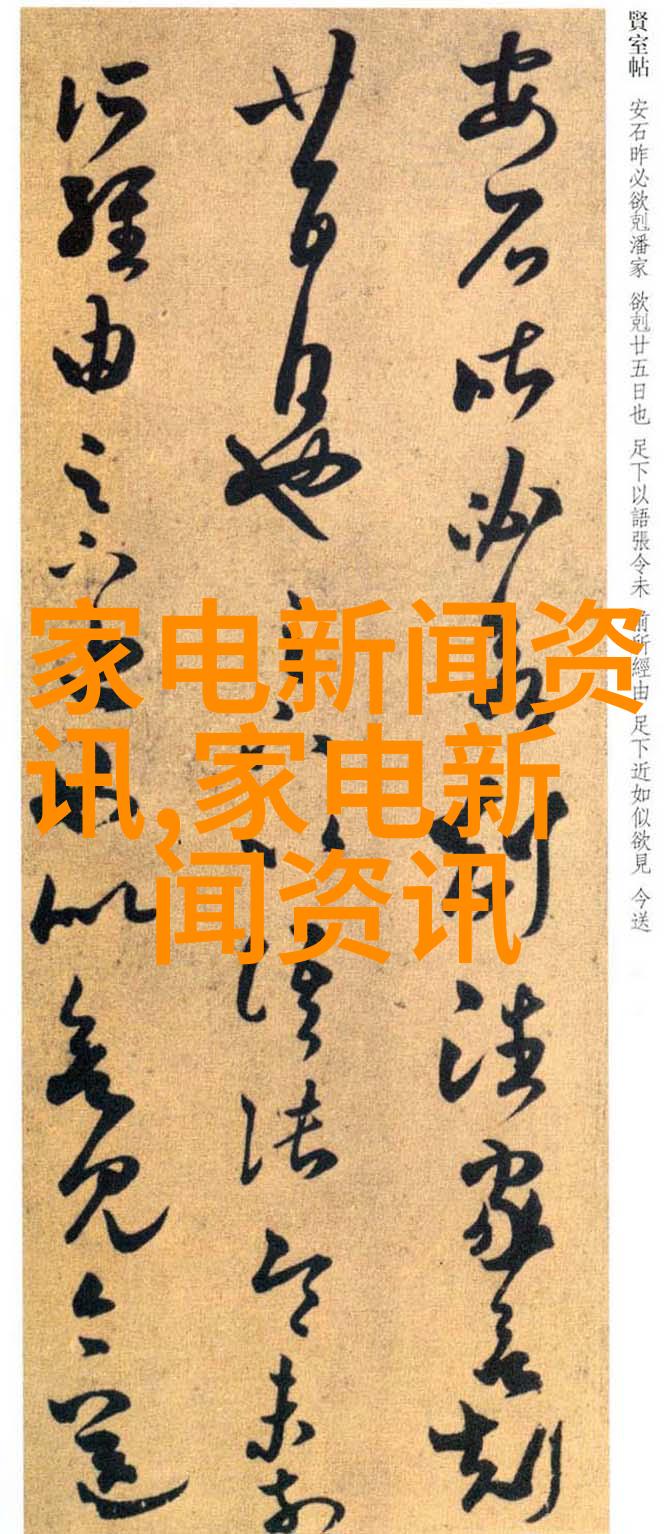 賢室帖 安石昨必欲剋潘家 欲剋廿五日也 足下以語張令未 前所經由足下近如似欲見 今送
安石昨必欲剋潘家欲剋
廿五日也足下以語張令未前
所經由足下近如似欲見今送
家电新闻资
讯,家电新
闻资讯